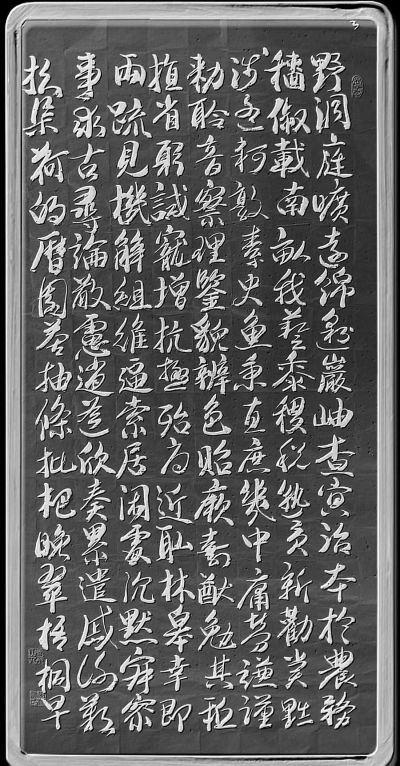 野洞庭曠遠綿邈巖岫杳冥治本於農務
穡俶載南畝我藝黍稷稅熟貢新勸賞黜
陟孟軻敦素史魚秉直庶幾中庸勞謙謹
勅聆音察理鑒貌辨色貽厥嘉猷勉其祗
植省躬誡寵增抗極殆辱近耻林皋幸即
兩疏見機解組維逼索居閑處沉默寂寥
事求古尋論散慮逍遙欣奏累遣慼謝歡
招渠荷的曆園莽抽條枇杷晚翠梧桐早